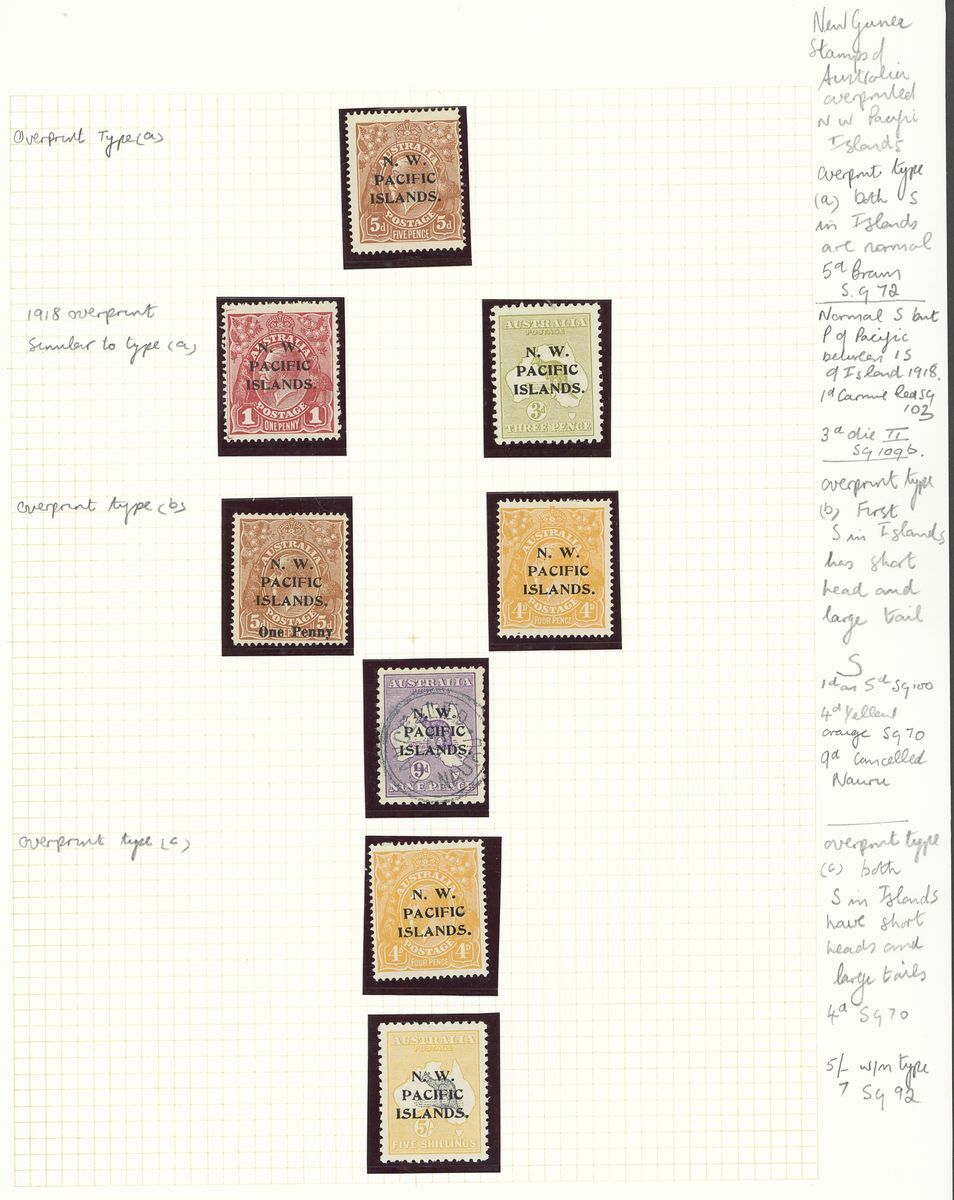 New Guinea
Stamps of
Australia
overprinted
N W Pacific
Islands
Overprint Type (a)
AUSTRALIA
N. W.
PACIFIC
ISLANDS.
POSTAGE
5d 5d
FIVE PENCE
overprint type
(a) both S
in Islands
are normal
5d Brown
S.G 72
1918 overprint
similar to type (a)
AUSTRALIA
N. W.
PACIFIC
ISLANDS.
POSTAGE
1 1
ONE PENNY
AUSTRALIA
POSTAGE
N. W.
PACIFIC
ISLANDS.
3d
THREE PENCE
Normal S but
P of Pacific
between IS
of Island 1918.
1d Carmine Red SG
103
3d die II
SG 109b.
Overprint type (b)
AUSTRALIA
N. W.
PACIFIC
ISLANDS.
POSTAGE
5d 5d
One Penny
AUSTRALIA
N. W.
PACIFIC
ISLANDS.
POSTAGE
4D 4D
FOUR PENCE
AUSTRALIA
N. W.
PACIFIC
ISLANDS.
9d
NINE PENCE
NAURU
overprint type
(b) First
S in Islands
has short
head and
large tail
S
1d on 5d SG100
4d Yellow
orange SG 70
9d cancelled
Nauru
Overprint type (c)
AUSTRALIA
N. W.
PACIFIC
ISLANDS.
POSTAGE
4D 4D
FOUR PENCE
AUSTRALIA
POSTAGE
N. W.
PACIFIC
ISLANDS.
5/-
FIVE SHILLINGS
overprint type
(c) both
S in Islands
have short
heads and
large tails
4d SG 70
5/- w/m type
7 SG 92